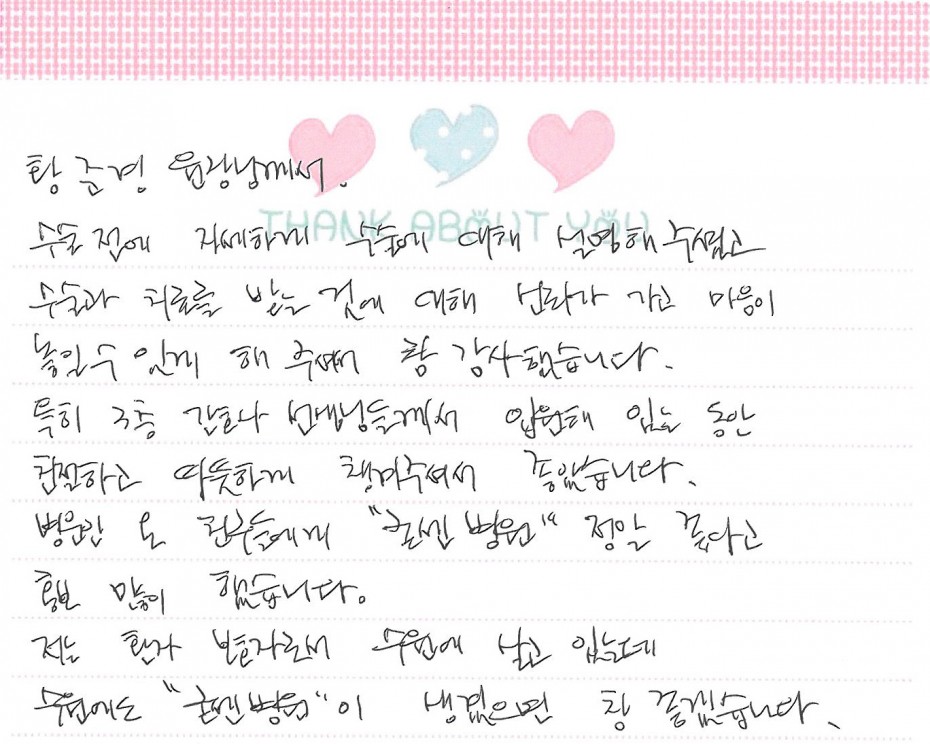 THANK ABOUT YOU
황준경 원장님께서.
수술 전에 자세하게 수술에 대해 설명해 주셨고
수술과 치료를 받는 것에 대해 신뢰가 가고 마음이
놓일 수 있게 해 주셔서 참 감사했습니다.
특히 3층 간호사 선생님들께서 입원해 있는 동안
친절하고 따뜻하게 챙겨주셔서 좋았습니다.
병문안 온 친구들에게 "굳센병원" 정말 좋다고
홍보 많이 했습니다.
저는 환자 보호자로서 수원에 살고 있는데
수원에도 "굳센병원"이 생겼으면 참 좋겠습니다.